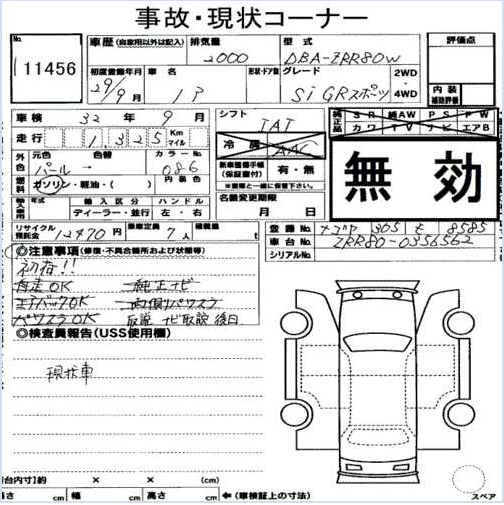 事故・現状コーナー
No. 11456
車歴 (自家用以外は記入) 排気量 2000 型式 DBA-ZRR80W
評価点
初度登録年月 29/9月 車名 形状・ドア数 グレード Si GRスポーツ 2WD・4WD
内装補助評価
車検 32 年 9 月 シフト IAT
走行 1 3 2 5 Km マイル 冷房 AAC
純正品 SR 純AW PS PW カワ TV ナビ エアB
外色 元色 パール 色替 カラーNo. 086
新車整備手帳(保証書付) 有・無
※車歴と一緒に保管下さい。
無効
燃料 ガソリン・軽油・( ) 内装色
名義変更期限
月 日
輸入車用 年式 輸入区分 ディーラー・並行 ハンドル 左・右
リサイクル預託金 12470 円 乗車定員 7 人 積載量 t
登録No. 305 8585
車台No. ZRR80-0356562
シリアルNo.
◎注意事項 (修復・不具合箇所および状態等)
初荷!!
自走OK 純正ナビ
エアバックOK 両側パワスラ
パワスラOK 取説 ナビ取説 後日
◎検査員報告(USS使用欄)
現状車
荷台内寸) 約 × × (cm)
長さ cm 幅 cm 高さ cm ←(車検証上の寸法)
スペア